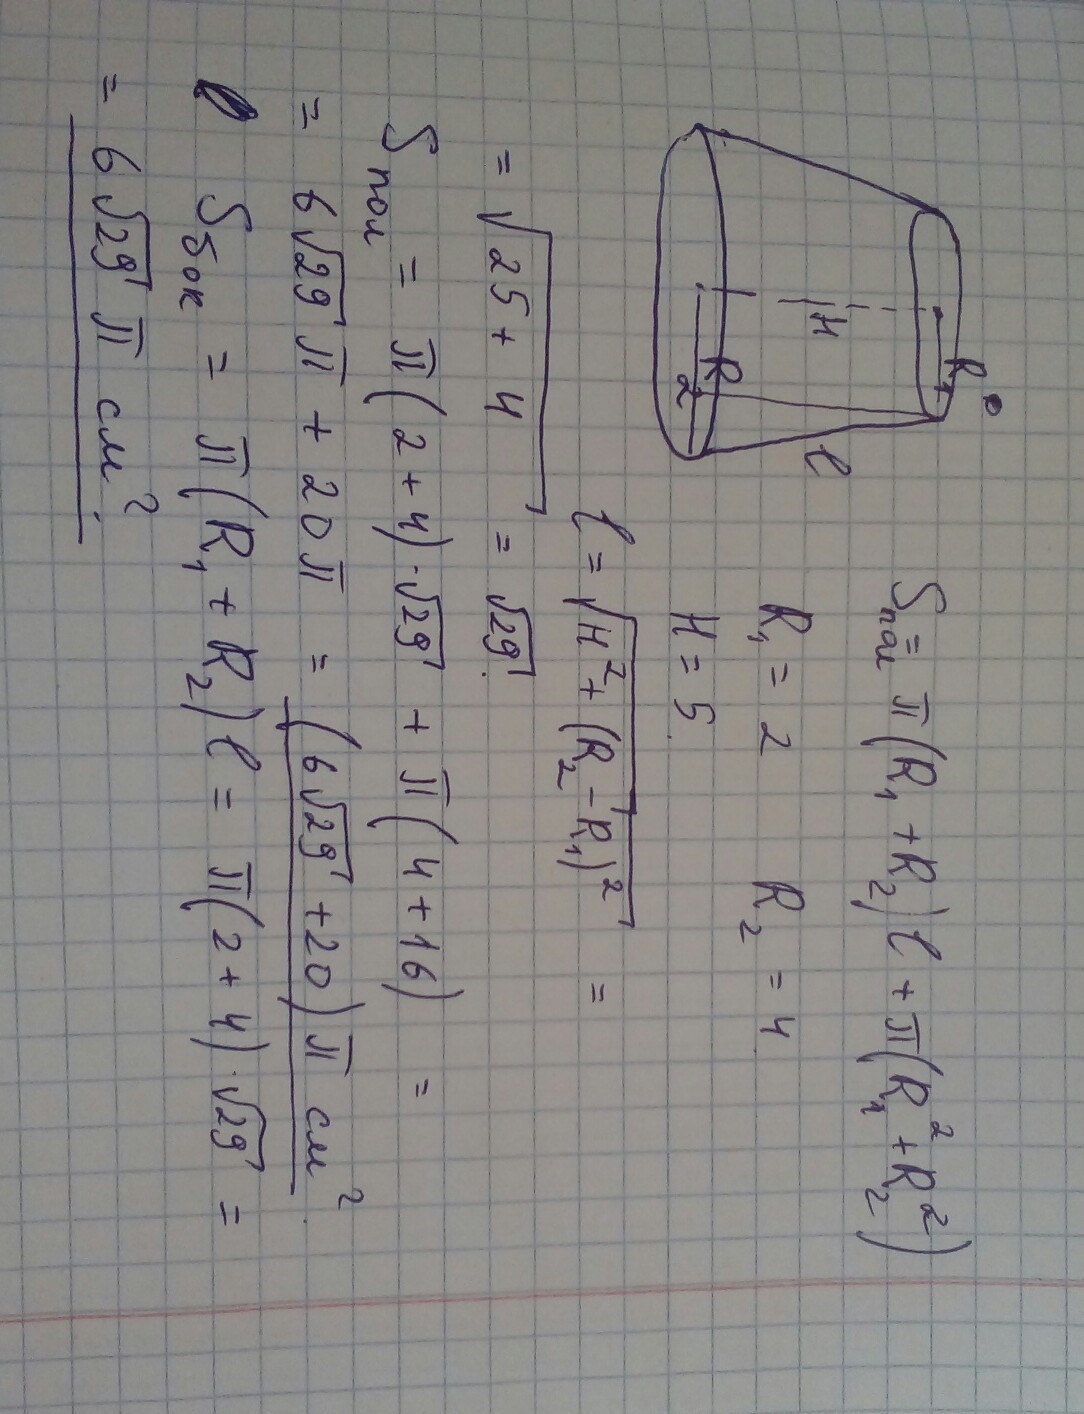 R₁
H
R₂
l
Sпол = π(R₁ + R₂)l + π(R₁² + R₂²)
R₁ = 2 R₂ = 4
H = 5
l = √(H² + (R₂ - R₁)²) =
= √(25 + 4) = √29.
Sпол = π(2 + 4)·√29 + π(4 + 16) =
= 6√29 π + 20π = (6√29 + 20)π см².
Sбок = π(R₁ + R₂)l = π(2 + 4)·√29 =
= 6√29 π см².